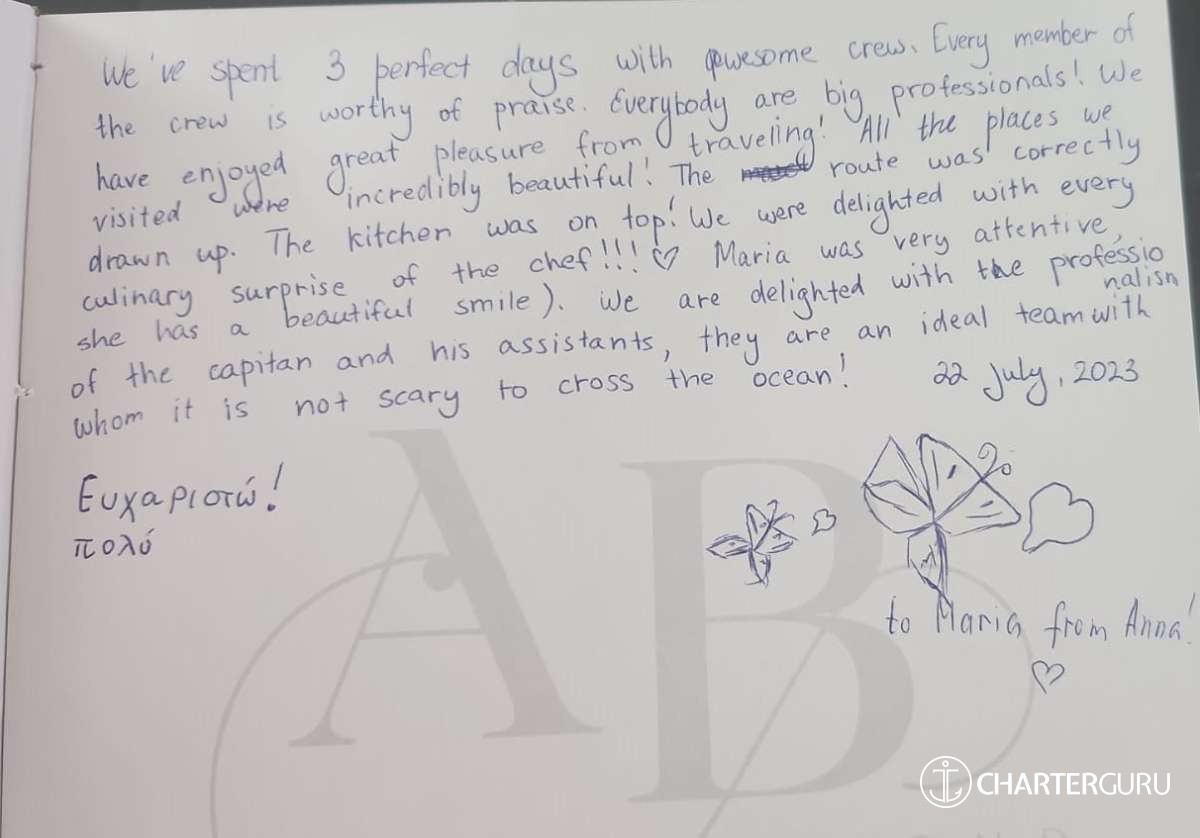 We've spent 3 perfect days with awesome crew. Every member of
the crew is worthy of praise. Everybody are big professionals! We
have enjoyed great pleasure from traveling! All the places we
visited were incredibly beautiful! The route was correctly
drawn up. The kitchen was on top! We were delighted with every
culinary surprise of the chef!!! ♡ Maria was very attentive,
she has a beautiful smile). We are delighted with the professio
nalism
of the capitan and his assistants, they are an ideal team with
whom it is not scary to cross the ocean! 22 July, 2023
Ευχαριστώ!
πολύ
to Maria from Anna!
♡
AB
CHARTERGURU